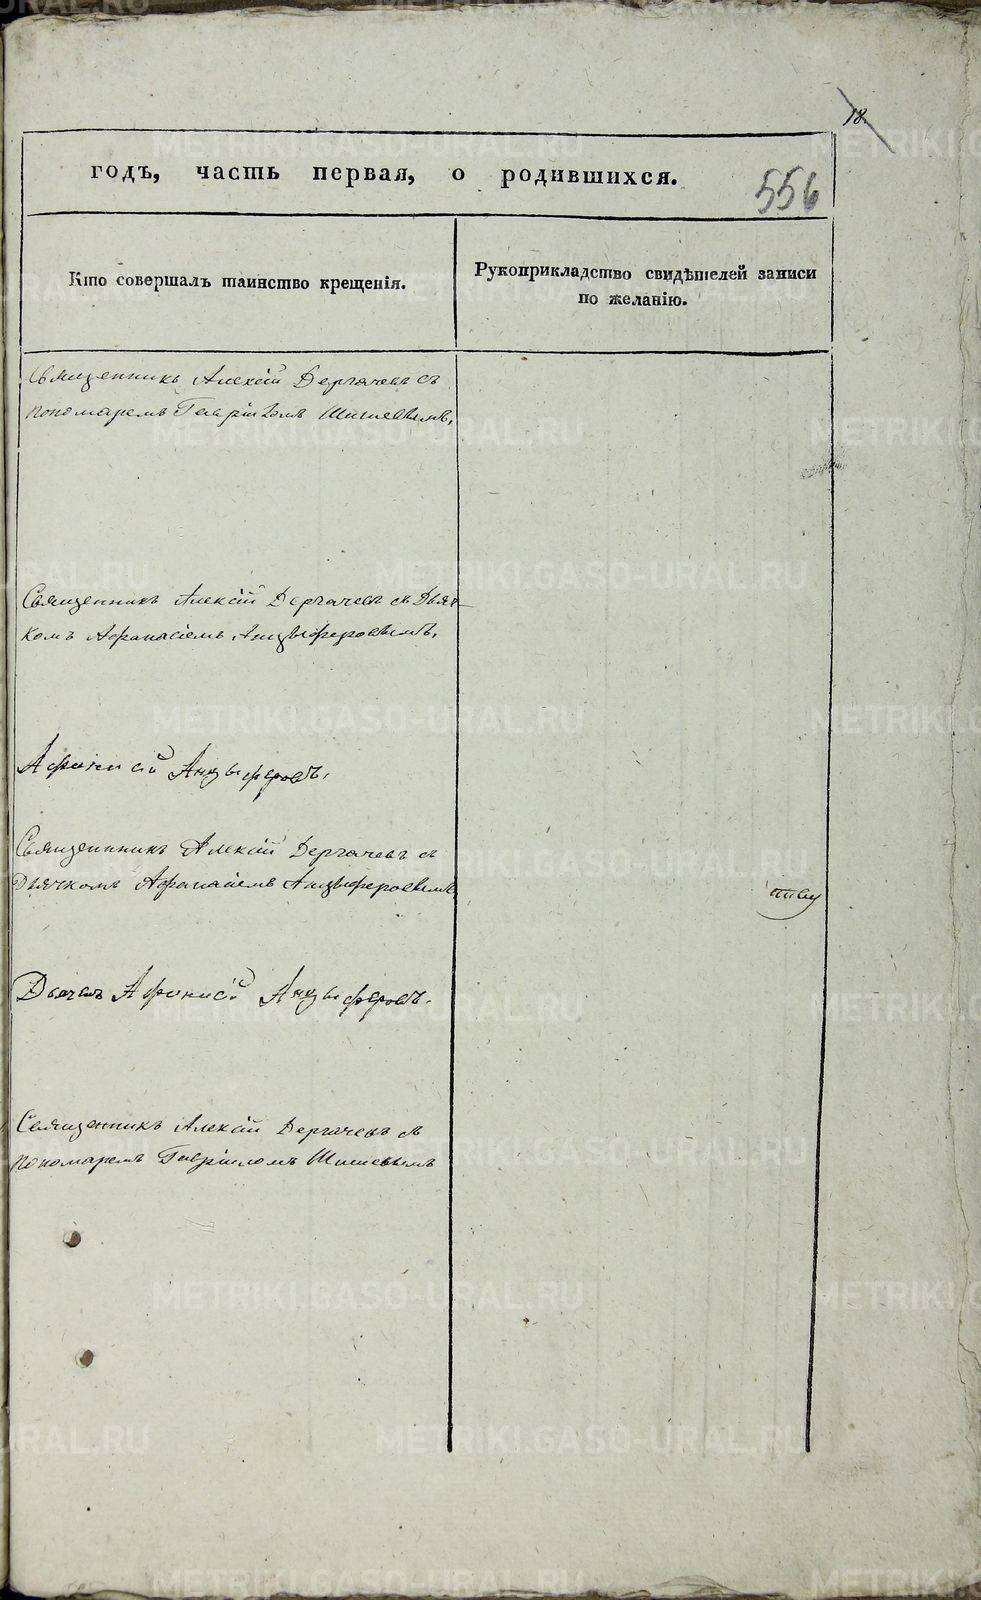 18.
годъ, часть первая, о родившихся.
556
Кто совершалъ таинство крещенія.
Рукоприкладство свидѣтелей записи
по желанію.
Священникъ Алексій Дергачевъ съ
пономаремъ Гавріиломъ Шишевымъ,
Священникъ Алексій Дергачевъ съ Дьяч-
комъ Афанасіемъ Анцыферовымъ,
Афанасій Анцыферовъ,
Священникъ Алексій Дергачевъ съ
Дьячкомъ Афанасіемъ Анцыферовымъ,
Дьячекъ Афанасій Анцыферовъ.
Священникъ Алексій Дергачевъ съ
пономаремъ Гавріиломъ Шишевымъ
METRIKI.GASO-URAL.RU